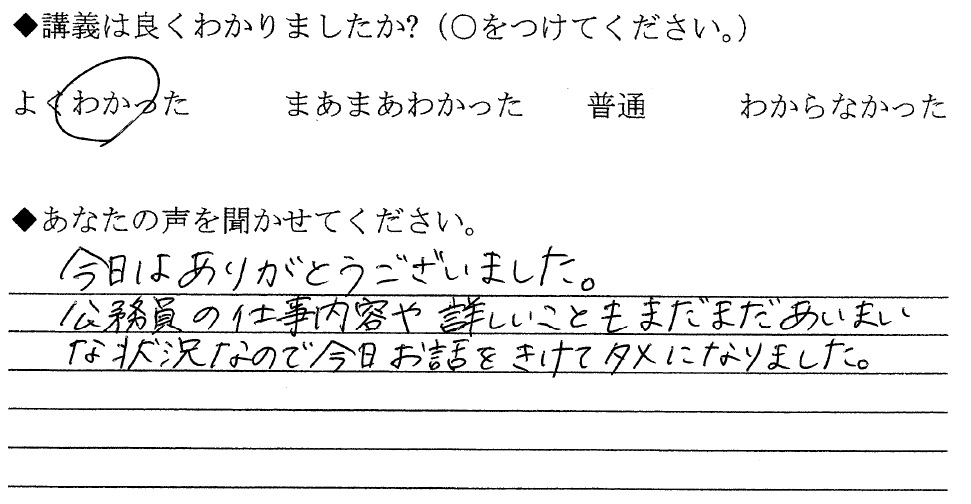 ◆講義は良くわかりましたか?（○をつけてください。）
よくわかった　まあまあわかった　普通　わからなかった
◆あなたの声を聞かせてください。
今日はありがとうございました。
公務員の仕事内容や詳しいこともまだまだあいまい
な状況なので今日お話をきけてタメになりました。